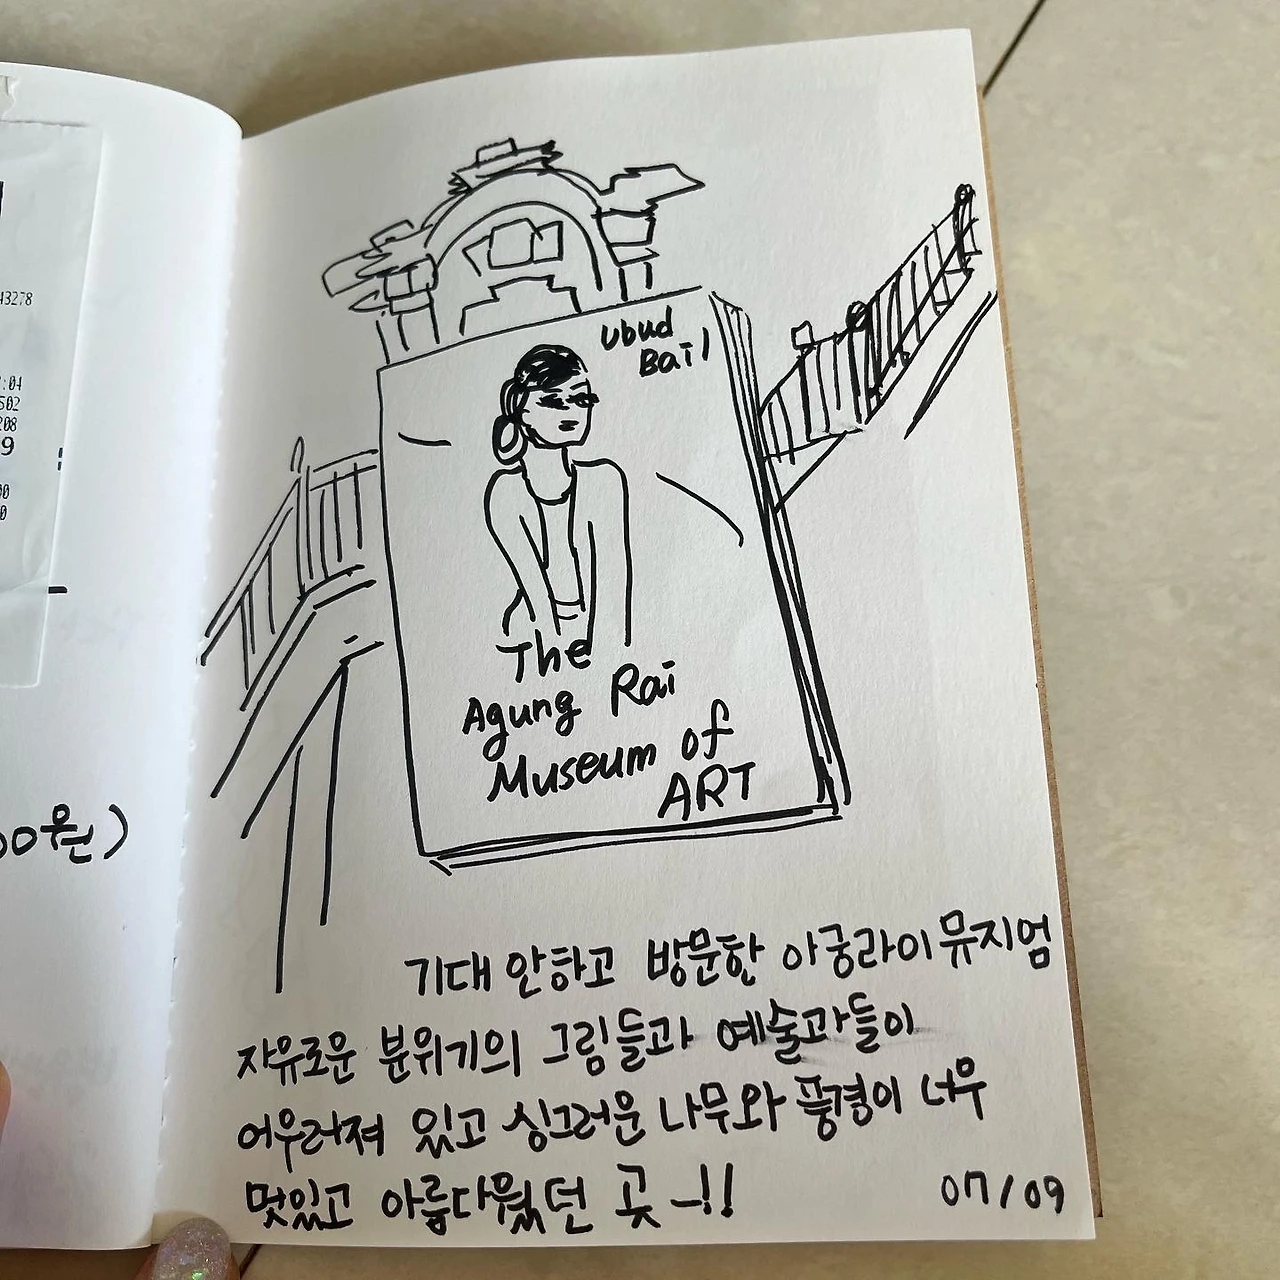 43278
:04
502
208
9
00
0
00원)
Ubud
Bail
The
Agung Rai
Museum of
ART
기대 안하고 방문한 아궁라이 뮤지엄
자유로운 분위기의 그림들과 예술과들이
어우러져 있고 싱그러운 나무와 풍경이 너무
멋있고 아름다웠던 곳-!!
07/09